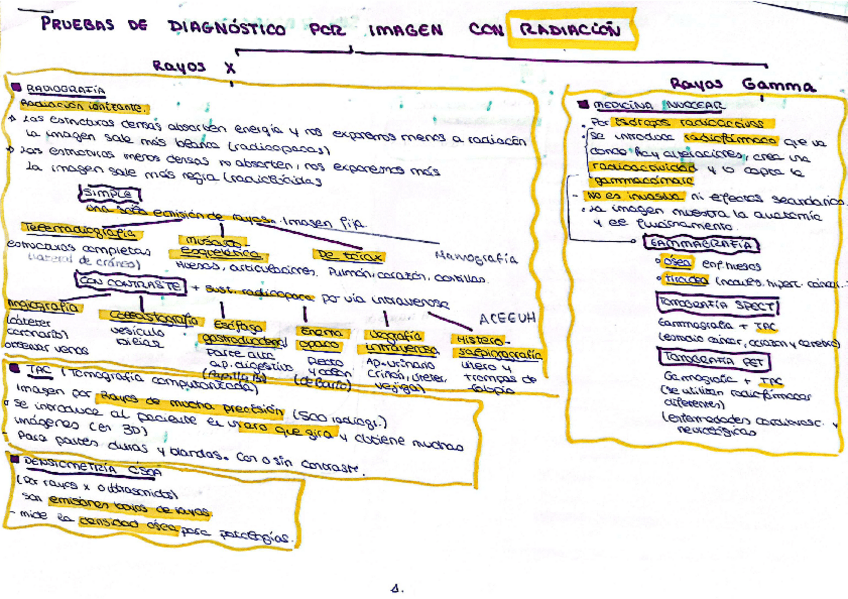 PRUEBAS DE DIAGNÓSTICO POR IMAGEN CON RADIACIÓN
Rayos X
RADIOGRAFÍA
Radiación ionizante.
Las estructuras densas absorben energía y nos exponemos menos a radiación
la imagen sale más blanca (radiopacas)
Las estructuras menos densas no absorben, nos exponemos más
la imagen sale más negra (radiolúcidas
SIMPLE
una sola emisión de rayos. Imagen fija.
Telerradiografía
estructuras completas
(lateral de cráneo)
músculo
esquelética
Huesos, articulaciones.
De tórax
Pulmón, corazón, costillas.
Mamografía
CON CONTRASTE + sust. radiopaca por vía intravenosa
ACEEUH
Angiografía
(catéter
coronario)
venas
Colecistografía
vesícula
biliar
Esófago
gastroduodenal
parte alta
ap. digestivo
(Papilla Ba)
Enema
opaco
Recto
y colon
(de Bario)
Urografía
intravenosa
Ap. urinario
(riñón, ureter,
vejiga)
Histero-
salpingografía
utero y
trompas de
falopio
TAC (Tomografía computarizada)
Imagen por Rayos de mucha precisión (500 radiogr.)
Se introduce al paciente en un aro que gira y obtiene muchas
imágenes (en 3D)
- Para partes duras y blandas. Con o sin contraste.
DENSIOMETRÍA ÓSEA
(Por rayos x o ultrasonidos)
son emisiones bajas de rayos
- mide la densidad ósea para patologías.
Rayos Gamma
MEDICINA NUCLEAR
· Por isótropos radioactivos
· Se introduce radiofármaco que va
donde hay alteraciones, crea una
radioactividad y lo capta la
gammacámara
- No es invasiva ni efectos secundarios.
· La imagen muestra la anatomía
y el funcionamiento.
GAMMAGRAFÍA
Ósea enf. huesos
Tiroidea
TOMOGRAFÍA SPECT
Gammagrafía + TAC
corazón y cerebro)
TOMOGRAFÍA PET
Gamagrafía + TAC
(se utilizan radiofármacos
diferentes)
(enfermedades cardiovasc. y
neurológicas
1.